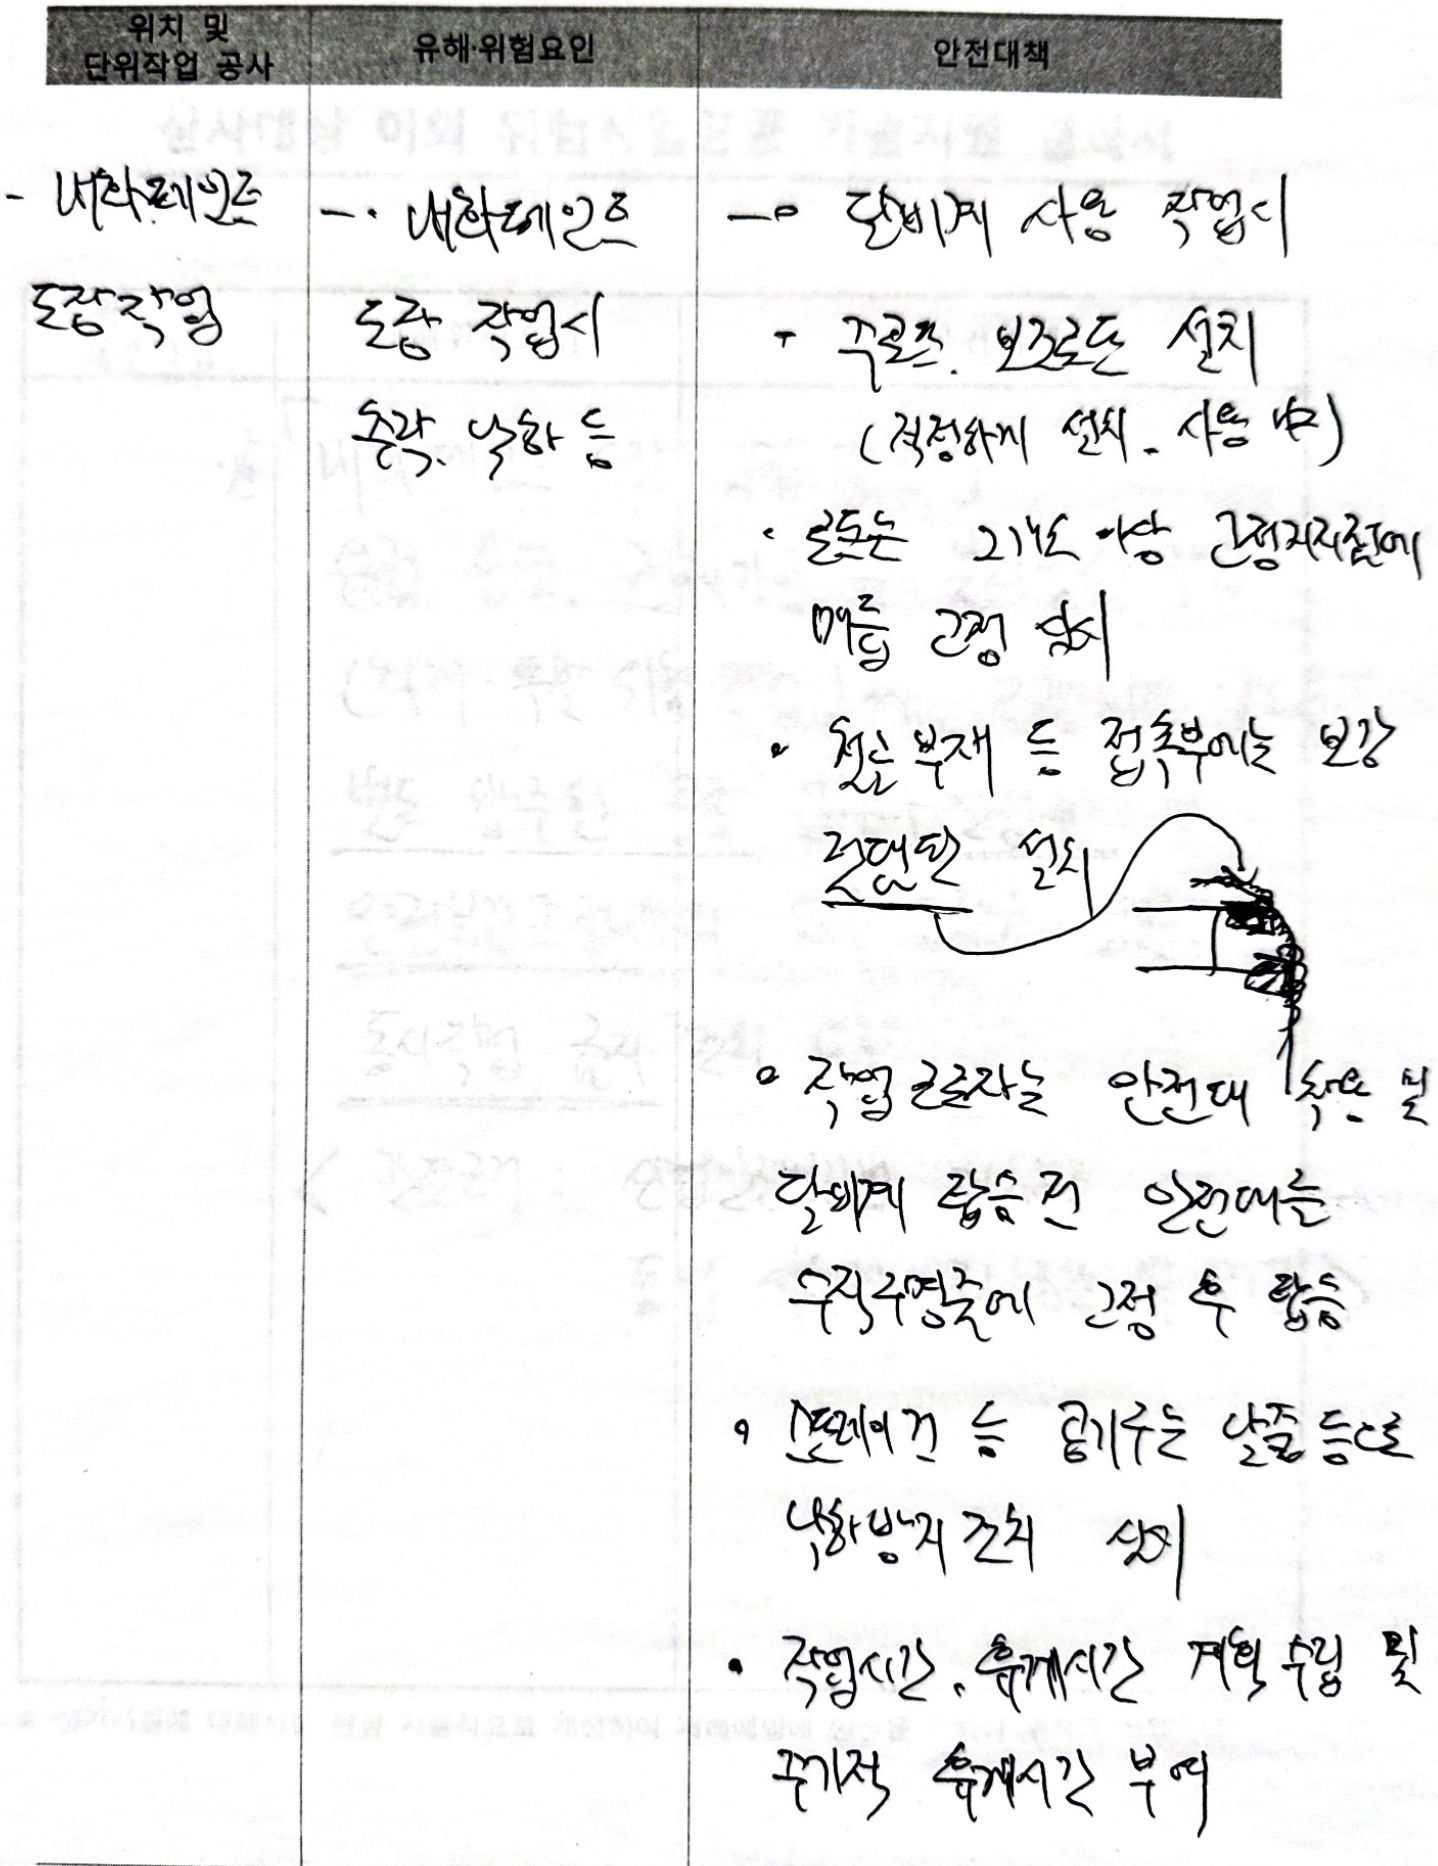 위치 및
단위작업 공사
유해·위험요인
안전대책
- 내화페인트
도장작업
- · 내화페인트
도장 작업시
추락. 낙하 등
- ∘ 달비계 사용 작업시
- 주로프. 보조로프 설치
(적정하게 설치. 사용 中)
· 로프는 2개소 이상 고정지지점에
매듭 고정 실시
∘ 철골부재 등 접촉부에는 보강
설치
∘ 작업근로자는 안전대 착용 및
달비계 탑승 전 안전대를
수직구명줄에 고정 후 탑승
∘ 스프레이건 등 공기구는 달줄 등으로
낙하방지 조치 실시
· 작업시간. 휴게시간 계획 수립 및
주기적 휴게시간 부여